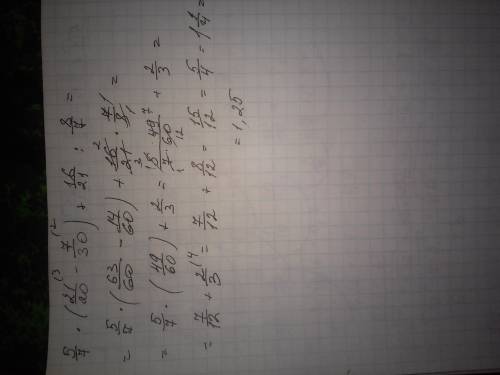 5/7 · (21/20 (3 - 7/30 (2) + 16/21 : 8/7 =
= 5/7 · (63/60 - 14/60) + 16 2/21 3 · 7 1/8 1 =
= 5/7 · (49/60) + 2/3 = 5 1 · 49 7/7 1 · 60 12 + 2/3 =
= 7/12 + 2/3 (4 = 7/12 + 8/12 = 15/12 = 5/4 = 1 1/4 =
= 1,25